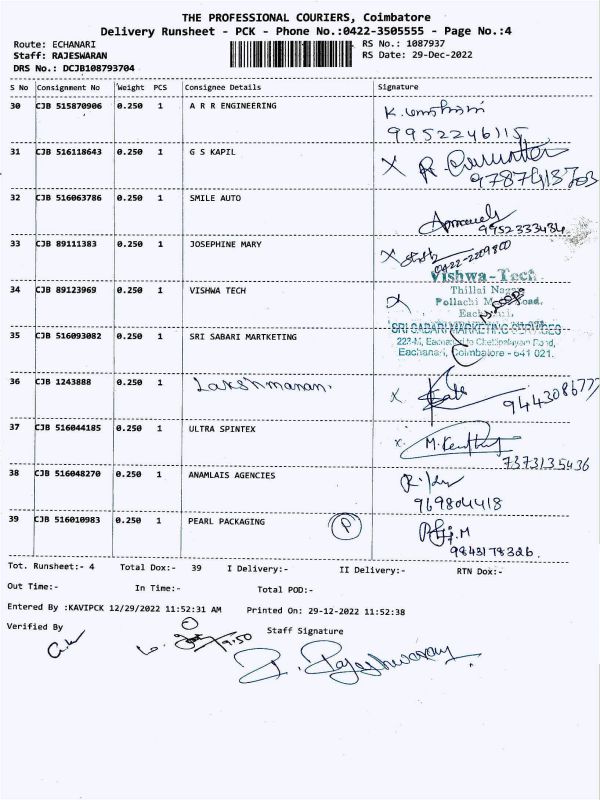 THE PROFESSIONAL COURIERS, Coimbatore
Delivery Runsheet - PCK - Phone No.:0422-3505555 - Page No.:4
Route: ECHANARI
RS No.: 1087937
Staff: RAJESWARAN
RS Date: 29-Dec-2022
DRS No.: DCJB108793704
S No Consignment No Weight PCS Consignee Details Signature
30 CJB 515870906 0.250 1 A R R ENGINEERING
9952246115
31 CJB 516118643 0.250 1 G S KAPIL X
9787413703
32 CJB 516063786 0.250 1 SMILE AUTO
9952333434
33 CJB 89111383 0.250 1 JOSEPHINE MARY X
0422-2209800
34 CJB 89123969 0.250 1 VISHWA TECH
Vishwa-Tech
Thillai Nagar
Pollachi Main Road,
Eachanari,
35 CJB 516093082 0.250 1 SRI SABARI MARTKETING
SRI SABARI MARKETING SERVICES
Eachanari, Coimbatore - 641 021.
36 CJB 1243888 0.250 1 Lakshmanan. X
37 CJB 516044185 0.250 1 ULTRA SPINTEX X
7373135436
38 CJB 516048270 0.250 1 ANAMLAIS AGENCIES
969804418
39 CJB 516010983 0.250 1 PEARL PACKAGING P
9843178326.
Tot. Runsheet:- 4 Total Dox:- 39 I Delivery:- II Delivery:- RTN Dox:-
Out Time:- In Time:- Total POD:-
Entered By :KAVIPCK 12/29/2022 11:52:31 AM Printed On: 29-12-2022 11:52:38
Verified By Staff Signature
9.50